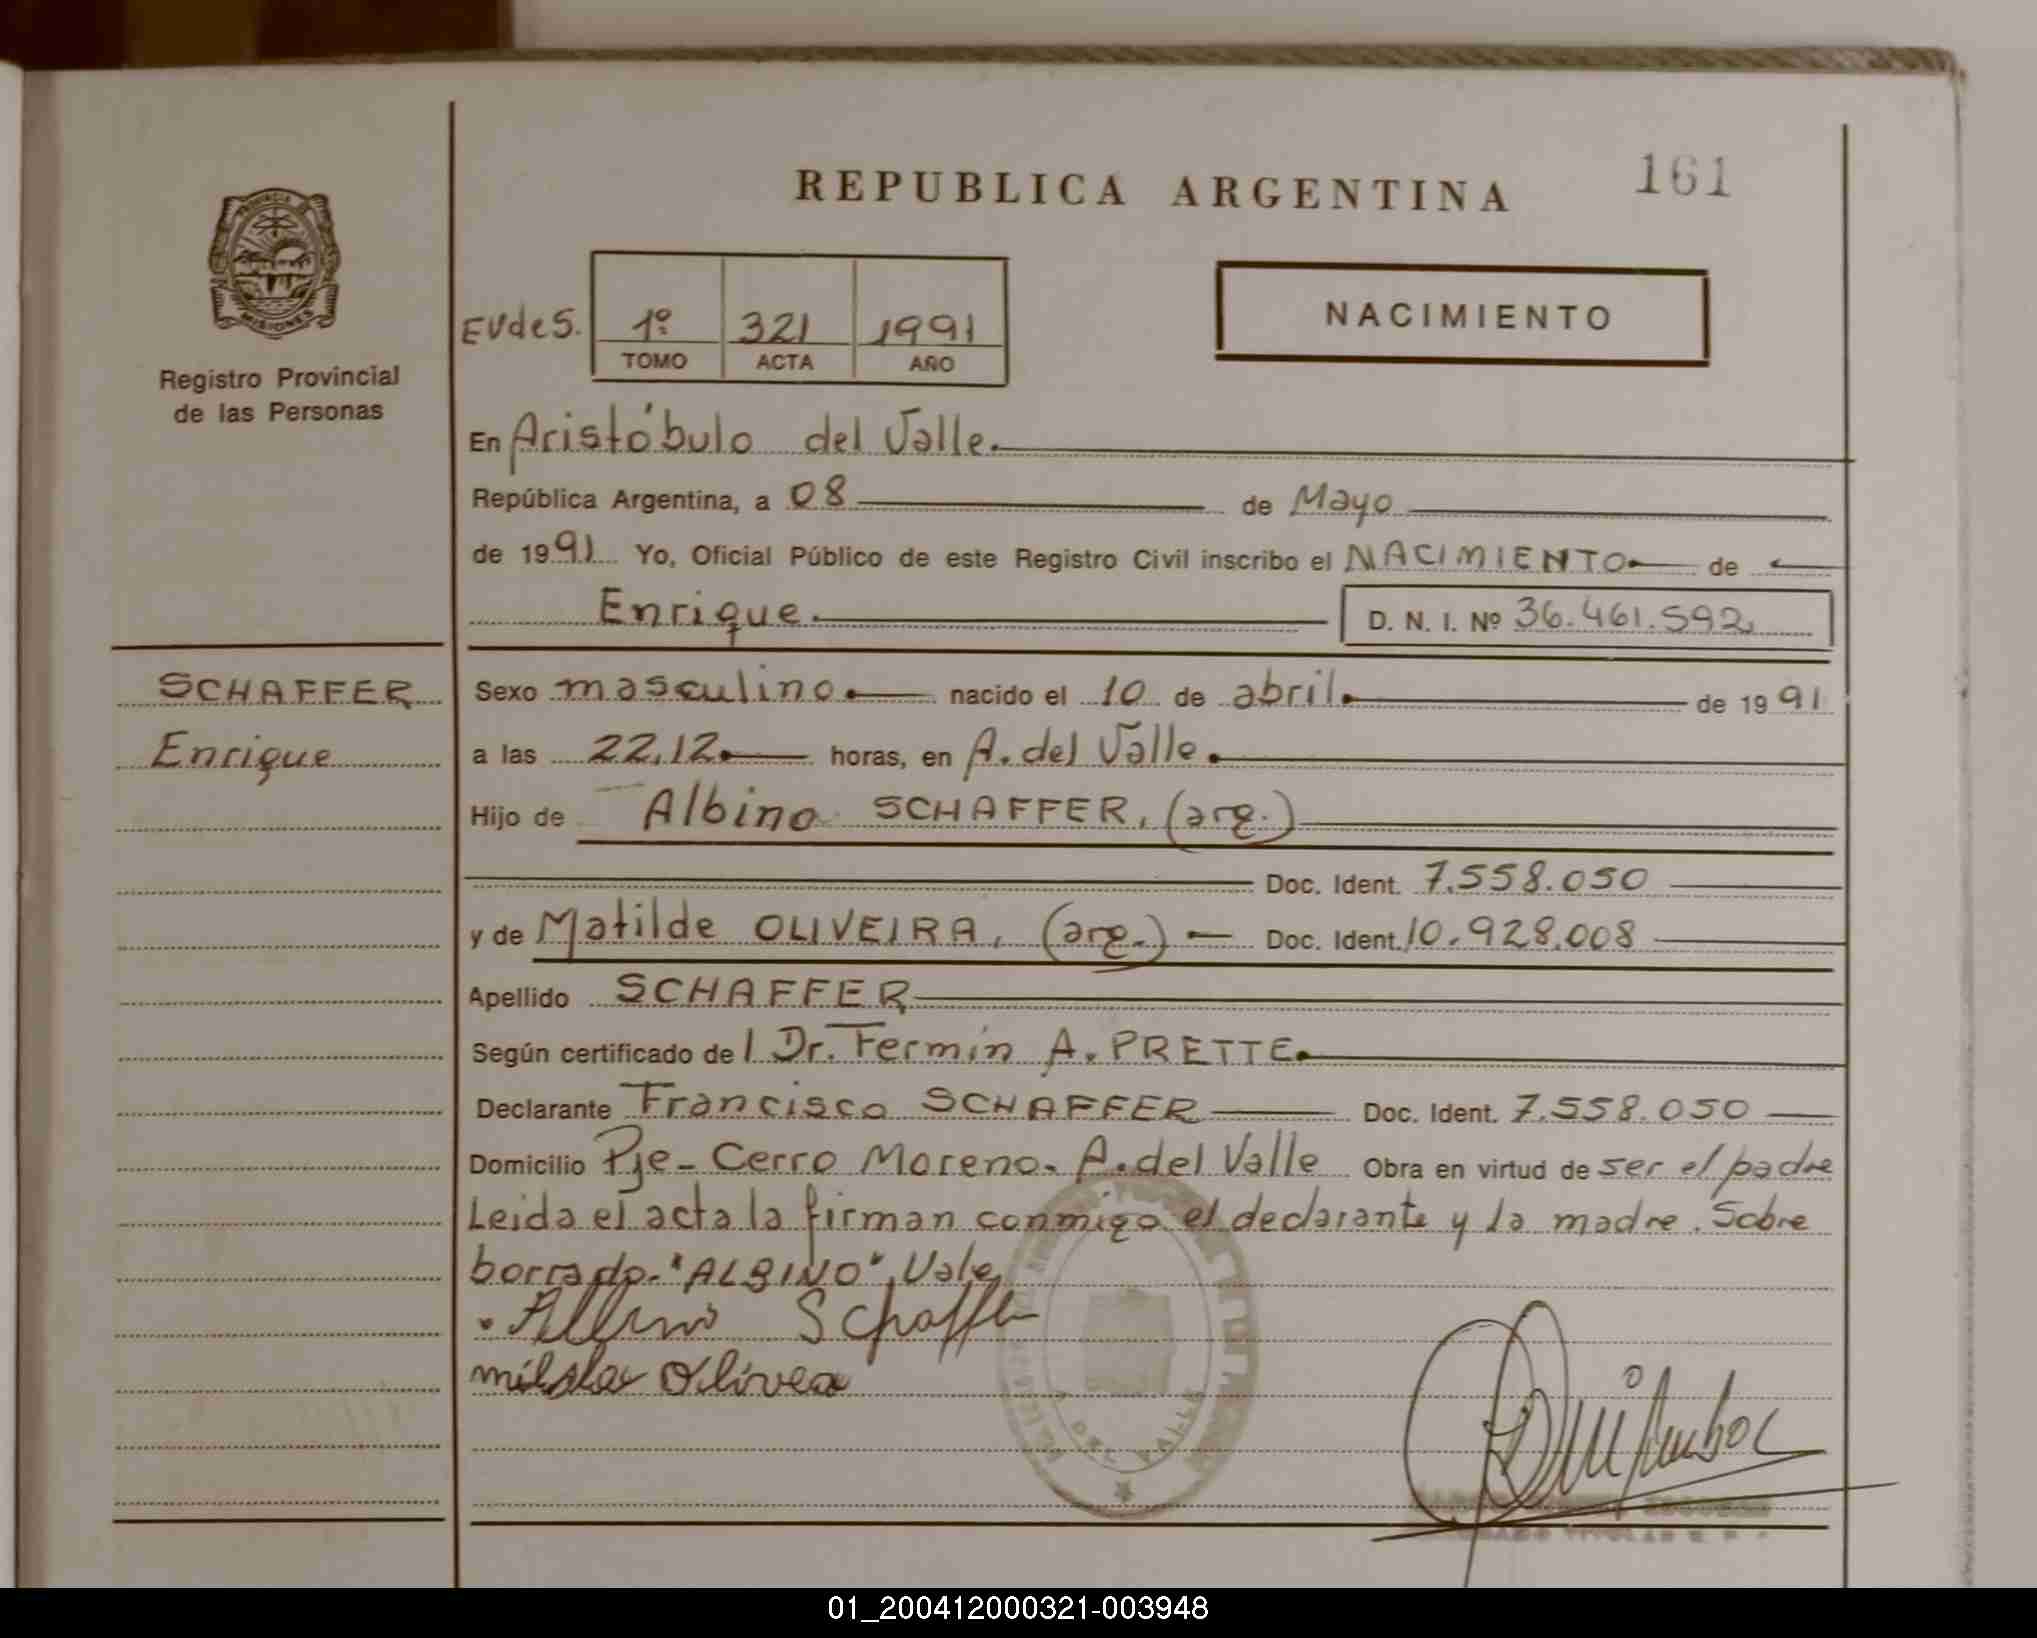 REPUBLICA ARGENTINA
161
PROVINCIA DE
MISIONES
Registro Provincial
de las Personas
EVdeS.
1º 321 1991
TOMO ACTA AÑO
NACIMIENTO
En Aristóbulo del Valle.
República Argentina, a 08 de Mayo
de 1991 Yo, Oficial Público de este Registro Civil inscribo el NACIMIENTO de
Enrique. D. N. I. Nº 36.461.592
SCHAFFER
Enrique
Sexo masculino nacido el 10 de abril. de 1991
a las 22,12. horas, en A. del Valle.
Hijo de Albino SCHAFFER, (arg.)
Doc. Ident. 7.558.050
y de Matilde OLIVEIRA, (arg.) — Doc. Ident. 10.928.008
Apellido SCHAFFER
Según certificado de l Dr. Fermín A. PRETTE.
Declarante Francisco SCHAFFER Doc. Ident. 7.558.050
Domicilio Pje- Cerro Moreno. A. del Valle Obra en virtud de ser el padre
Leida el acta la firman conmigo el declarante y la madre. Sobre
borrado. "ALBINO", Vale
A DEL VALLE
01_200412000321-003948